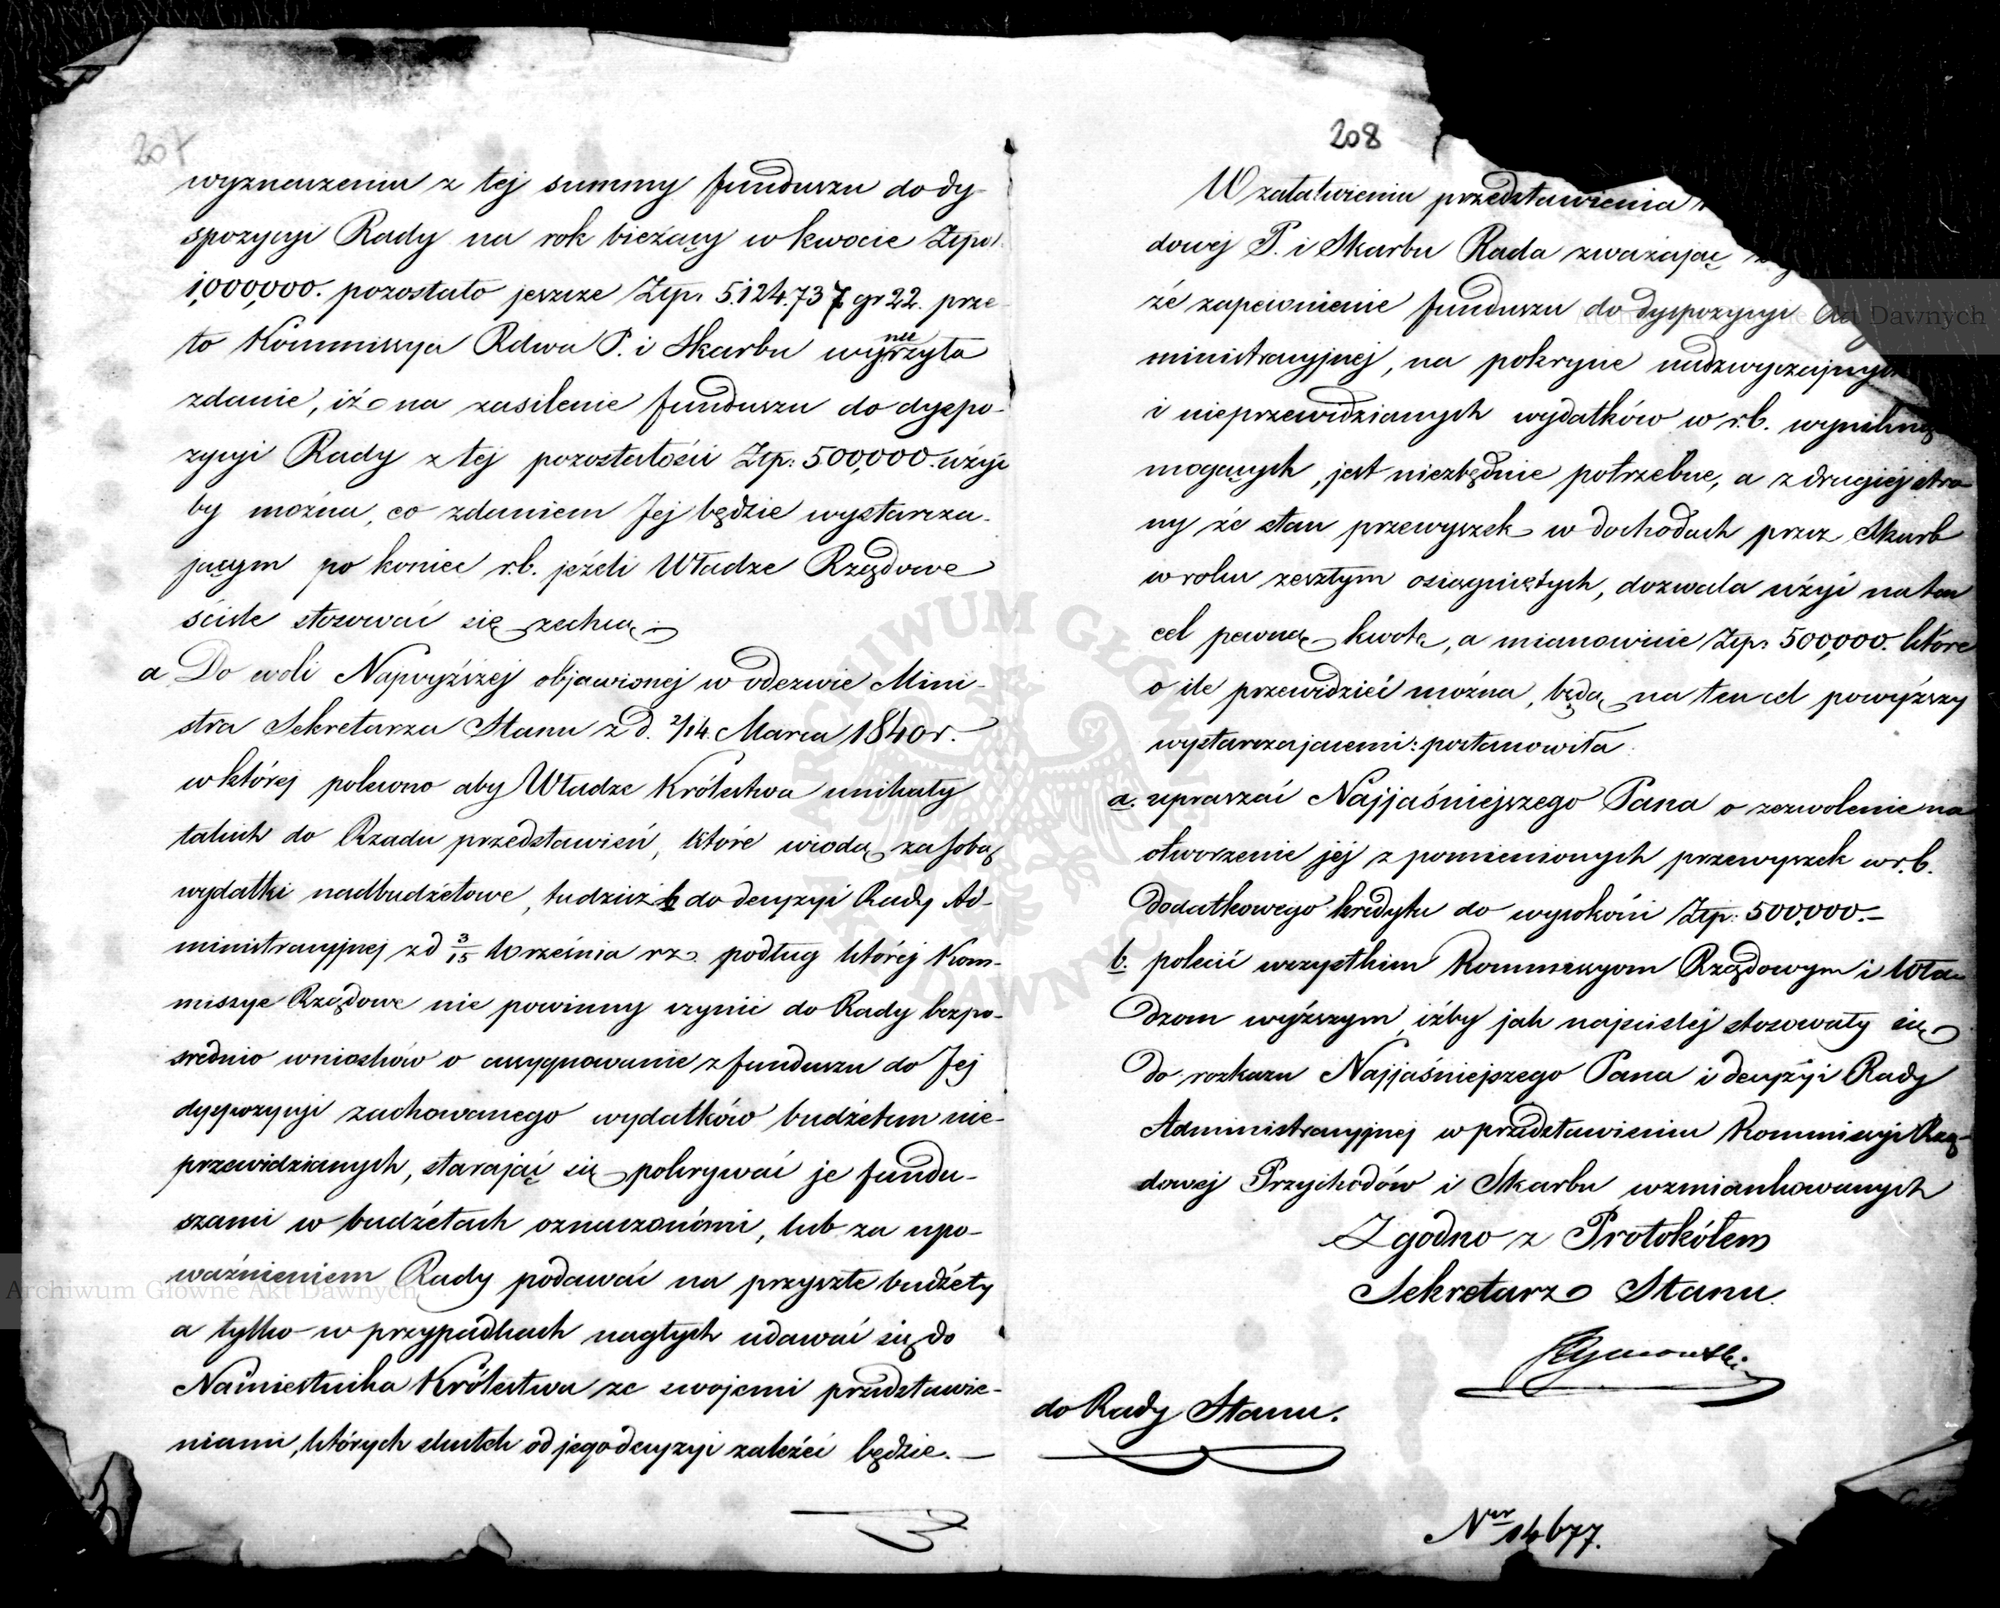 207
wyznaczeniu z tej summy funduszu do dy-
spozycyi Rady na rok bieżący w kwocie Złpol.
1,000,000. pozostało jeszcze Złp. 5.124.737 gr 22. prze-
to Kommissya Rdwa P. i Skarbu
zdanie, iż na zasilenie funduszu do dyspo-
zycyi Rady z tej pozostałości Złp: 500,000. użyć
by można, co zdaniem Jej będzie wystarcza-
jącym po koniec r.b. jeżeli Władze Rządowe
ściśle stosować się zechcą:
a Do woli Najwyższej objawionej w odezwie Mini-
stra Sekretarza Stanu z d. 2/14. Marca 1840 r.
w której polecono aby Władze Królestwa unikały
takich do Rządu przedstawień, które wiodą za sobą
wydatki nadbudżetowe, tudzież b do decyzyi Rady Ad-
ministracyjnej z d 3/15 Września rz. podług której Kom-
missye Rządowe nie powinny czynić do Rady bezpo-
srednio wniosków o assygnowanie z funduszu do Jej
dyspozycyi zachowanego wydatków budżetem nie-
przewidzianych, starając się pokrywać je fundu-
szami w budżetach oznaczonémi, lub za upo-
ważnieniem Rady podawać na przyszłe budżety
a tylko w przypadkach nagłych udawać się do
Namiestnika Królestwa ze swojemi przedstawie-
niami, których skutek od jego decyzyi zależeć będzie. —
208
W załatwieniu przedstawienia
dowej P. i Skarbu Rada zważając z
że zapewnienie funduszu do dyspozycyi
ministracyjnej, na pokrycie nadzwyczajnych
i nieprzewidzianych wydatków w r.b. wyniknąć
mogących, jest niezbędnie potrzebne, a z drugiej stro
ny że stan przewyszek w dochodach przez Skarb
w roku zeszłym osiągniętych, dozwala użyć na ten
cel pewną kwotę, a mianowicie Złp: 500,000. które
o ile przewidzieć można, będą na ten cel powyższy
wystarczającemi: postanowiła:
a. upraszać Najjaśniejszego Pana o zezwolenie na
otworzenie jej z pomienionych przewyszek w r.b.
dodatkowego kredytu do wysokości Złp: 500,000. —
b. polecić wszystkim Kommissyom Rządowym i Wła-
dzom wyższym iżby jak najściślej stosowały się
do rozkazu Najjaśniejszego Pana i decyzyi Rady
Administracyjnej w przedstawieniu Kommissyi Rzą-
dowej Przychodów i Skarbu wzmiankowanych
Zgodno z Protokółem
Sekretarz Stanu
do Rady Stanu.
Ner 14677.
Archiwum Główne Akt Dawnych
Archiwum Główne Akt Dawnych
ARCHIWUM GŁÓWNE AKT DAWNYCH